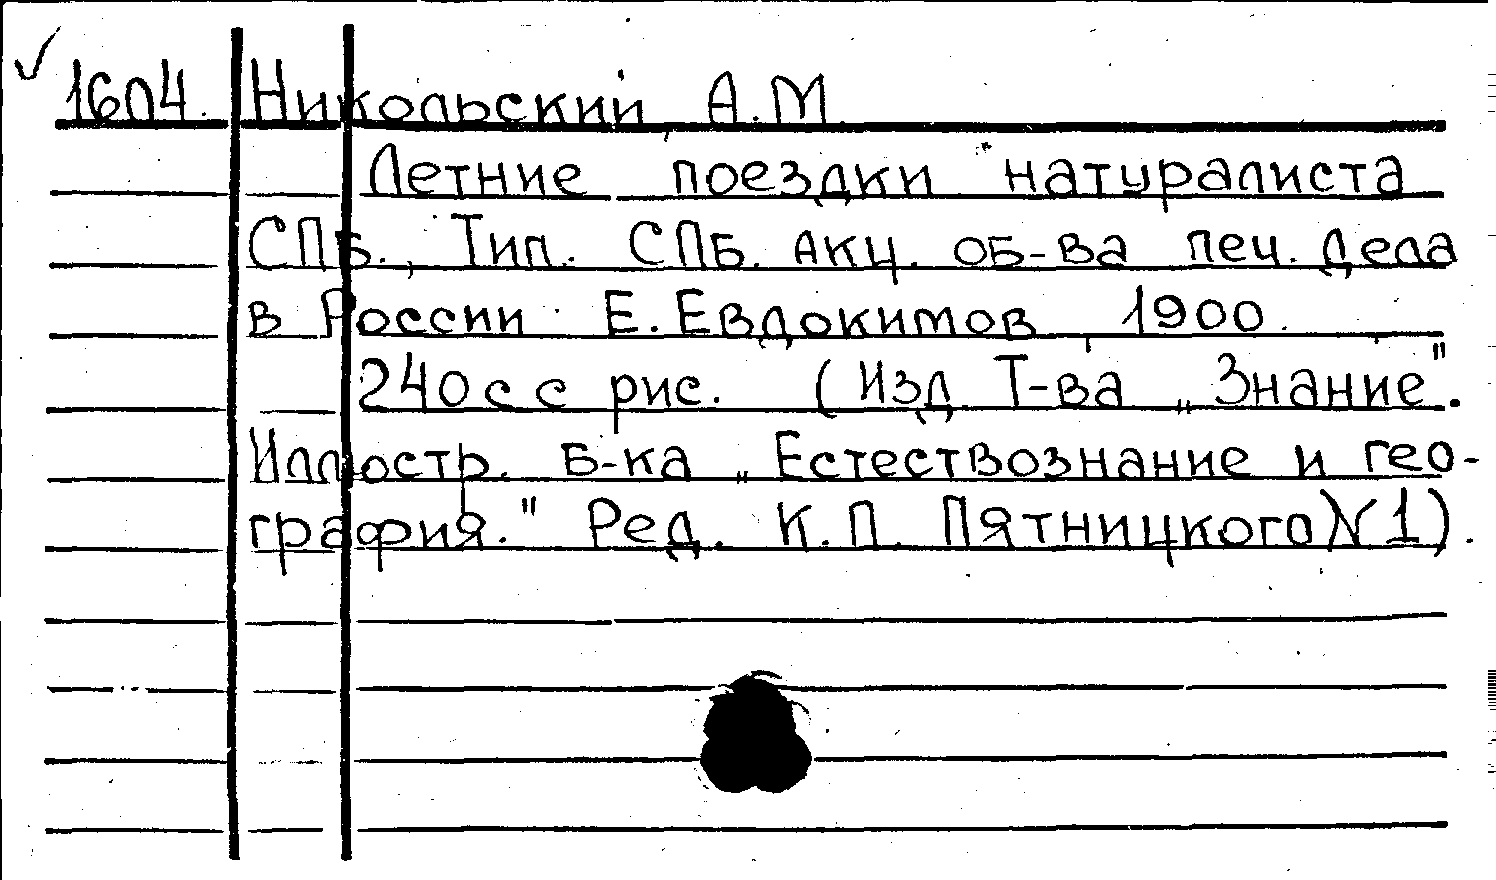 ✓ 1604. Никольский А.М.
Летние поездки натуралиста
СПБ., Тип. СПБ. Акц. об-ва печ. дела
в России Е. Евдокимов 1900.
240 с с рис. (Изд. Т-ва „Знание".
Иллюстр. Б-ка „Естествознание и гео-
графия." Ред. К.П. Пятницкого N 1).